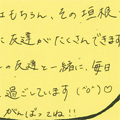 もちろん、その垣根
に反達がたくさんできます
の友達と一緒に、毎日
過ごしています(^o^)♡
がんばってね!!